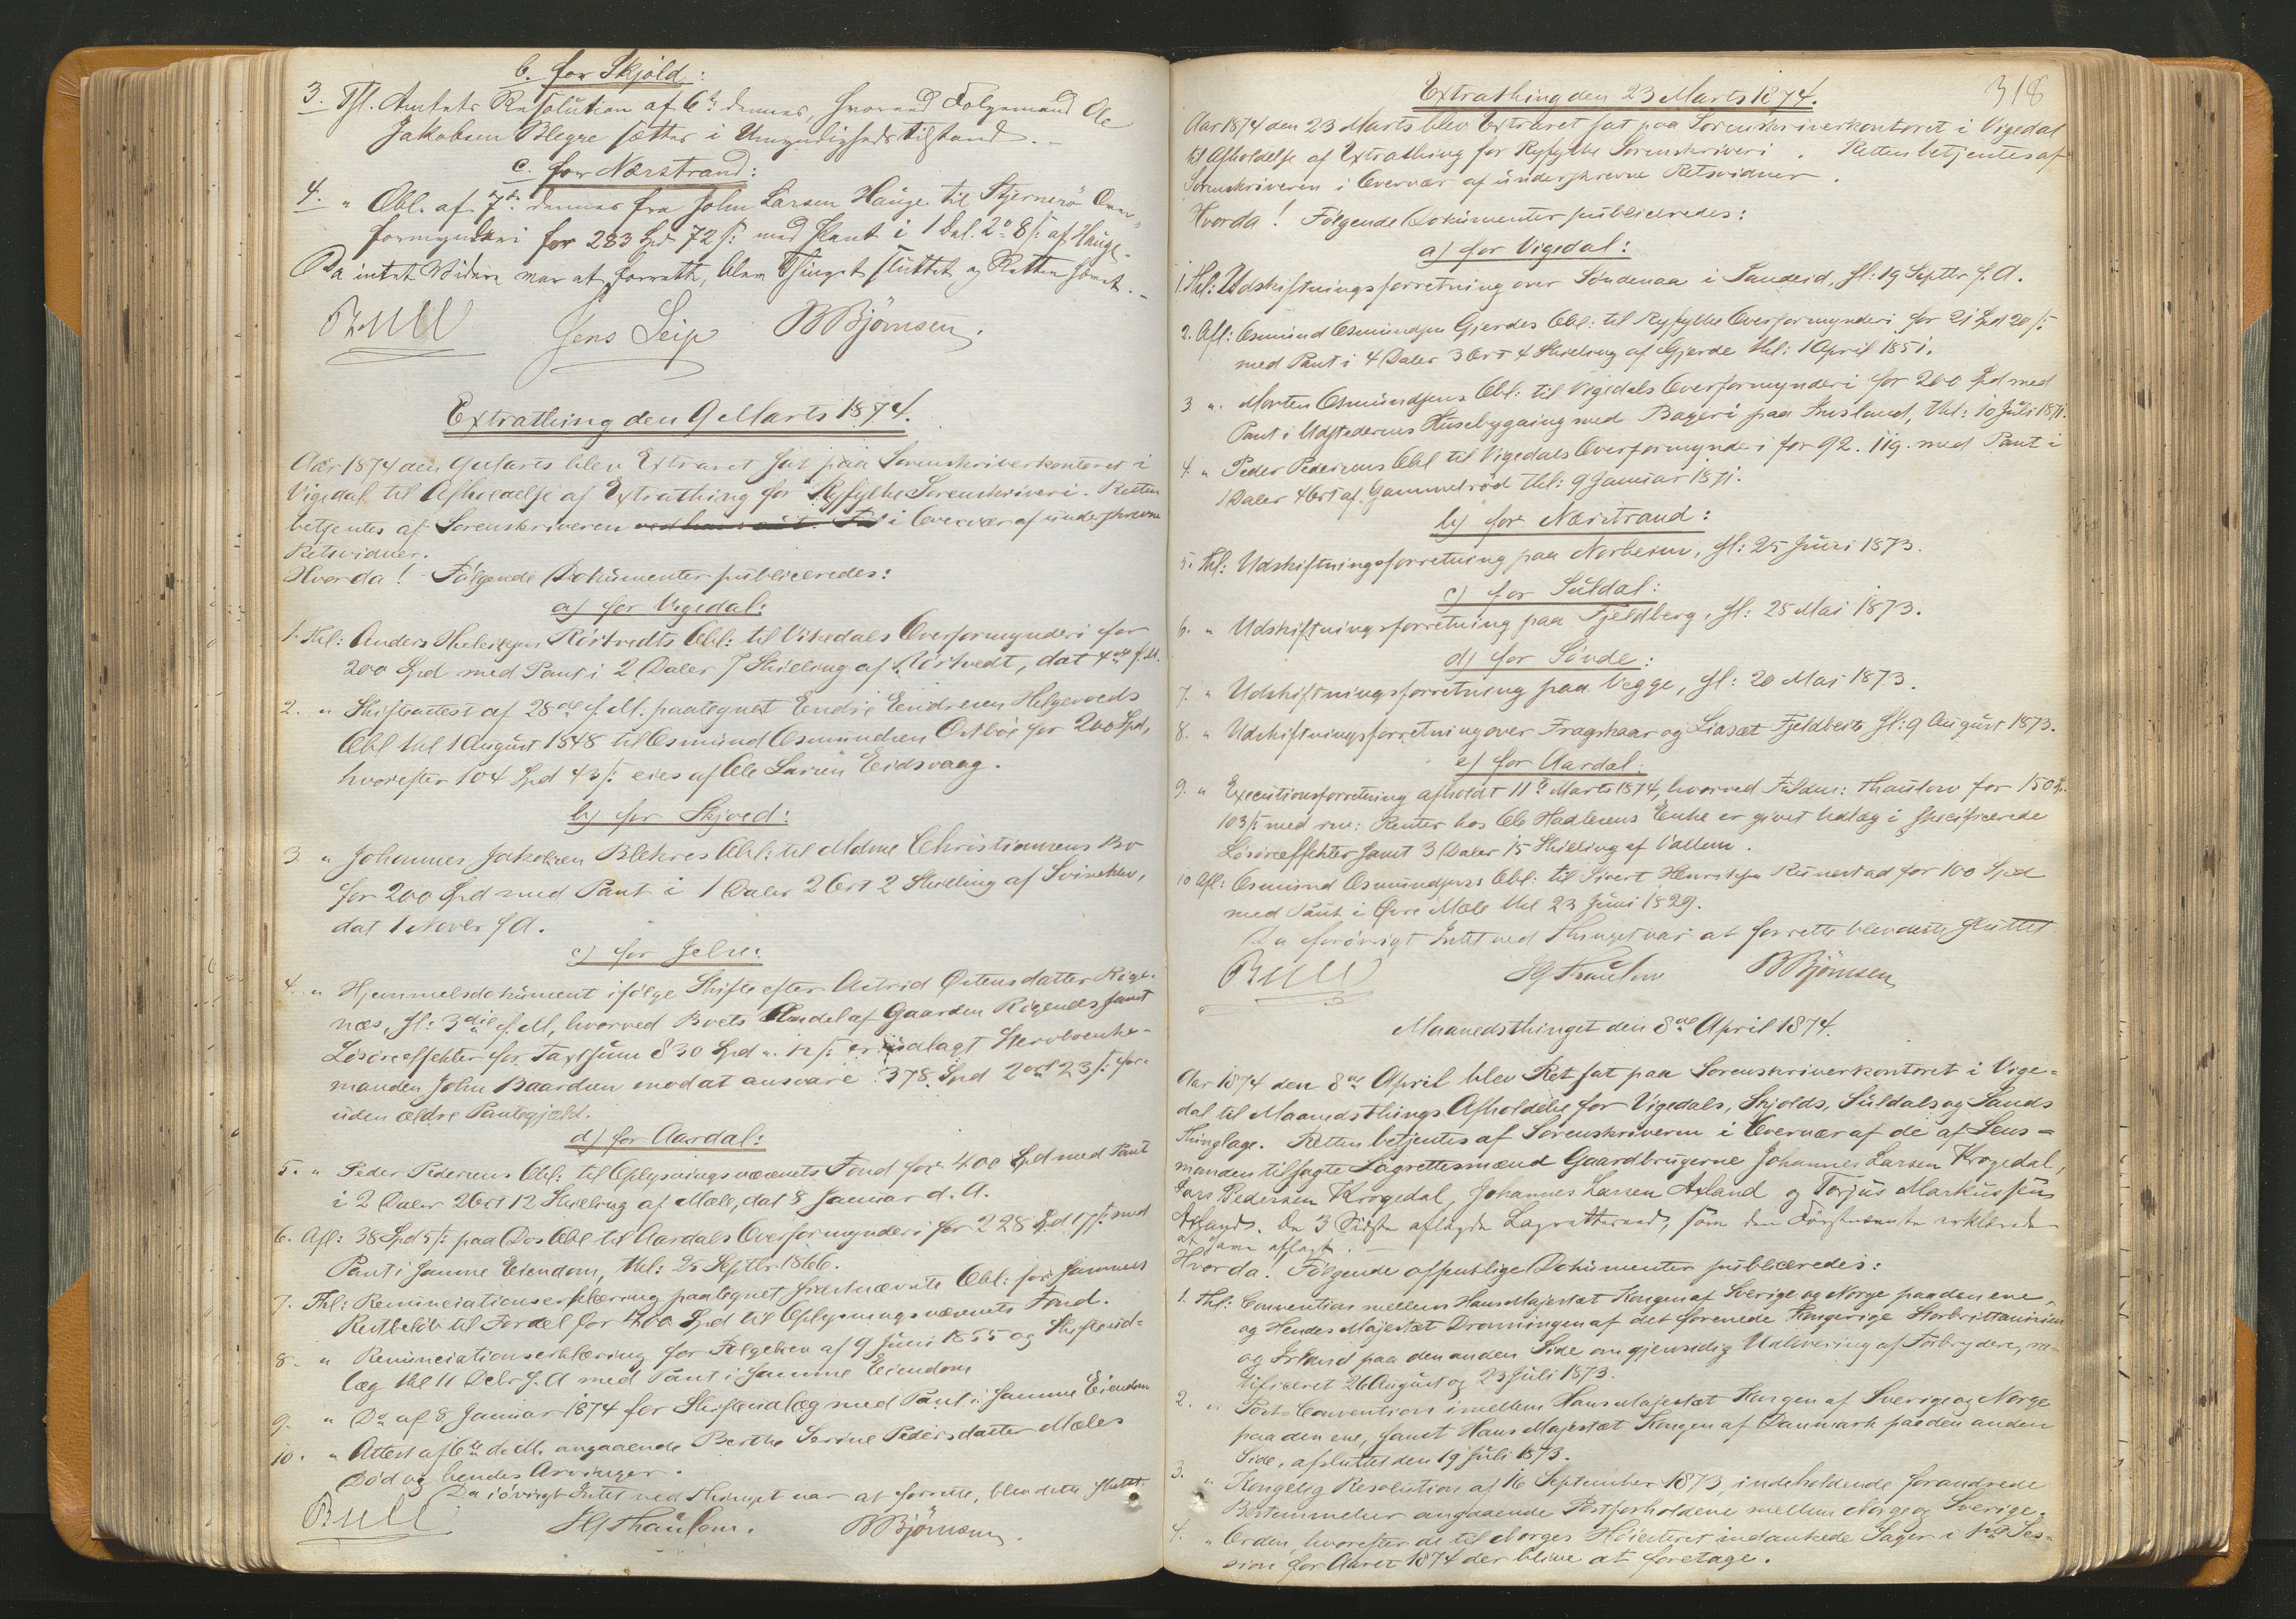 b. for Skjold:
3. Thl. Amtets Resolution af 6te dennes hvorved Følgemand Ole
Jakobsen Blegre sættes i Umyndighedstilstand.-
c. for Nærstrand:
4. " Obl. af 7de dennes fra John Larsen Hauge til Stjernerö Over-
formynderi for 283 Spd 72 ß med Pant i 1 Dal. 2 o 8 ß af Hauge.
Da intet Videre var at forrette, blev Thinget sluttet og Retten hævet.-
Bull Jens Leip B Björnsen.
Extrathing den 9 Marts 1874.
Aar 1874 den 9 Marts blev Extraret sat paa Sorenskriverkontoret i
Vigedal til Afholdelse af Extrathing for Ryfylke Sorenskriveri. Retten
betjentes af Sorenskriveren i Overvær af underskrevne
Retsvidner.
Hvorda! Følgende Dokumenter publiceredes:
a) for Vigedal:
1. Thl: Anders Thelessens Röstvedts Obl: til Vikedals Overformynderi for
200 Spd med Pant i 2 Daler 7 Skilling af Röstvedt, dat 4de f. M.
2. " Skifteattest af 28de f. M. paategnet Endre Endresen Helgevolds
Obl thl 1 August 1848 til Osmund Osmundsen Østbö for 200 Spd,
hvorefter 104 Spd 43 ß eies af Ole Larsen Eidsvaag.
b) for Skjold:
3. " Johannes Jakobsen Blekres Obl: til Mdme Christiansens Bo
for 200 Spd med Pant i 1 Daler 2 Ort 2 Skilling af Svineklev,
dat 1 Novbr f A.
c) for Jelse:
4. " Hjemmelsdokument ifølge Skifte efter Astrid Østensdatter Rige-
næs, sl: 3die f. M, hvorved Boets Andel af Gaarden Rigenæs samt
Løsøreeffekter for Taxtsum 830 Spd " 12 ß er udlagt Stervboenke-
manden John Baardsen mod at ansvare 378 Spd 2 ort 23 ß for-
uden ældre Pantegjæld.
d) for Aardal:
5. " Peder Pedersens Obl: til Oplysningsvæsenets Fond for 400 Spd med Pant
i 2 Daler 2 Ort 12 Skilling af Mæle, dat 8 Januar d. A.
6. Afl: 38 Spd 5 ß paa Dos Obl til Aardals Overformynderi for 228 Spd 17 ß med
Pant i samme Eiendom, thl: 25 Septbr 1866.
7. Thl: Renunciationserklæring paategnet sidstnævnte Obl: for sammes
Restbeløb til Fordel for 400 Spd til Oplysningsvæsenets Fond.
8. " Renunciationserklæring for Følgebrev af 9 Juni 1855 og Skifteud-
læg thl 11 Debr f. A med Pant i samme Eiendom
9. " Do af 8 Januar 1874 for Skifteudlæg med Pant i samme Eiendom
10. " Attest af 6te d. M. angaaende Berthe Serine Pedersdatter Mæles
Død og hendes Arvinger.
Da iøvrigt Intet ved Thinget var at forrette, blev dette sluttet.
Bull HG Thaulow. B Björnsen.
318
Extrathing den 23 Marts 1874.
Aar 1874 den 23 Marts blev Extraret sat paa Sorenskriverkontoret i Vigedal
til Afholdelse af Extrathing for Ryfylke Sorenskriveri. Retten betjentes af
Sorenskriveren i Overvær af underskrevne Retsvidner.
Hvorda! Følgende Dokumenter publiceredes:
a) for Vigedal:
1. Thl: Udskiftningsforretning over Søndenaa i Sandeid, sl: 19 Septbr f. A.
2. Afl: Osmund Osmundsen Gjerdes Obl: til Ryfylke Overformynderi for 21 Spd 20 ß
med Pant i 4 Daler 3 Ort 4 Skilling af Gjerde thl: 1 April 1851.
3 " Morten Osmundsens Obl: til Vigedals Overformynderi for 200 Spd med
Pant i Udstederens Husebygning med Bageri paa Imsland, thl: 10 Juli 1871.
4. " Peder Pedersens Obl til Vigedals Overformynderi for 92. 119. med Pant i
1 Daler 4 Ort af Gammelröd thl: 9 Januar 1871.
b) for Nærstrand:
5. Thl: Udskiftningsforretning paa Norheim, sl: 25 Juni 1873.
c) for Suldal:
6. " Udskiftningsforretning paa Fjeldberg, sl: 25 Mai 1873.
d) for Sövde:
7. " Udskiftningsforretning paa Vegge, sl: 20 Mai 1873.
8. " Udskiftningsforretning over Fragshaar og Liasæt Fjeldbeite sl: 9 August 1873.
e) for Aardal.
9. " Executionsforretning afholdt 11te Marts 1874, hvorved Fuldm: Thaulow for 150 Sp.
103 ß med Renter hos Ole Hadlesens Enke er givet Udlæg i specificerede
Løsøreeffekter samt 3 Daler 15 Skilling af Valleim.
10 Afl: Osmund Osmundsens Obl: til Sivert Henriksen Runestad for 100 Spd
med Pant i Øvre Mæle thl 23 Juni 1829.
Da forøvrigt Intet ved Thinget var at forrette blev dette sluttet
Bull HG Thaulow B Björnsen
Maanedsthinget den 8de April 1874.
Aar 1874 den 8de April blev Ret sat paa Sorenskriverkontoret i Vige-
dal til Maanedsthings Afholdelse for Vigedals, Skjolds, Suldals og Sands
Thinglage. Retten betjentes af Sorenskriveren i Overvær af de af Lens-
manden tilsagte Lagrettesmænd Gaardbrugerne Johannes Larsen Krogedal,
Lars Pedersen Krogedal, Johannes Larsen Axland og Torjus Markussen
Axland. De 3 Sidste aflagde Lagretteseed, som den Förstnævnte erklærede
at have aflagt.-
Hvorda! Følgende offentlige Dokumenter publiceredes:
1. Thl: Convention mellem Hans Majestæt Kongen af Sverige og Norge paa den ene,
og Hendes Majestæt Dronningen af det forenede Kongerige Storbrittannien
og Irland paa den anden Side om gjensidig Udlevering af Forbrydere, ra-
tificeret 26 August og 23 Juli 1873.
2. " Post-Convention imellem Hans Majestæt Kongen af Sverige og Norge
paa den ene, samt Hans Majestæt Kongen af Danmark paa den anden
Side, afsluttet den 19 Juli 1873.
3. " Kongelig Resolution af 16 September 1873, indeholdende forandrede
Bestemmelser angaaende Postforholdene mellem Norge og Sverige.
4. " Orden, hvorefter de til Norges Høiesteret indankede Sager i 1ste Ses-
sion for Aaret 1874 der blive at foretage.